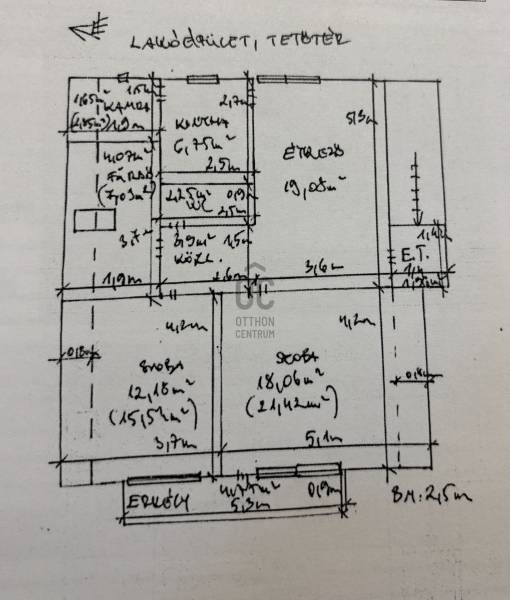 LAKÓÉPÜLET, TETŐTÉR
1,65m²
KAMRA
(2,85m²)
1,5m
1,9m
KONYHA
6,75m²
2,7m
2,5m
ÉTKEZŐ
19,08m²
5,3m
4,07m²
FÜRDŐ
(7,03m²)
3,7m
1,9m
2,25m²
WC
0,9m
2,5m
3,9m²
KÖZL.
1,5m
2,6m
3,6m
1,4m
E.T.
OTTHON
CENTRUM
4,2m
4,2m
0,8m
SZOBA
12,18m²
(15,54m²)
3,7m
SZOBA
18,06m²
(21,42m²)
5,1m
0,8m
ERKÉLY
4,77m²
5,3m
0,9m
BM: 2,5m